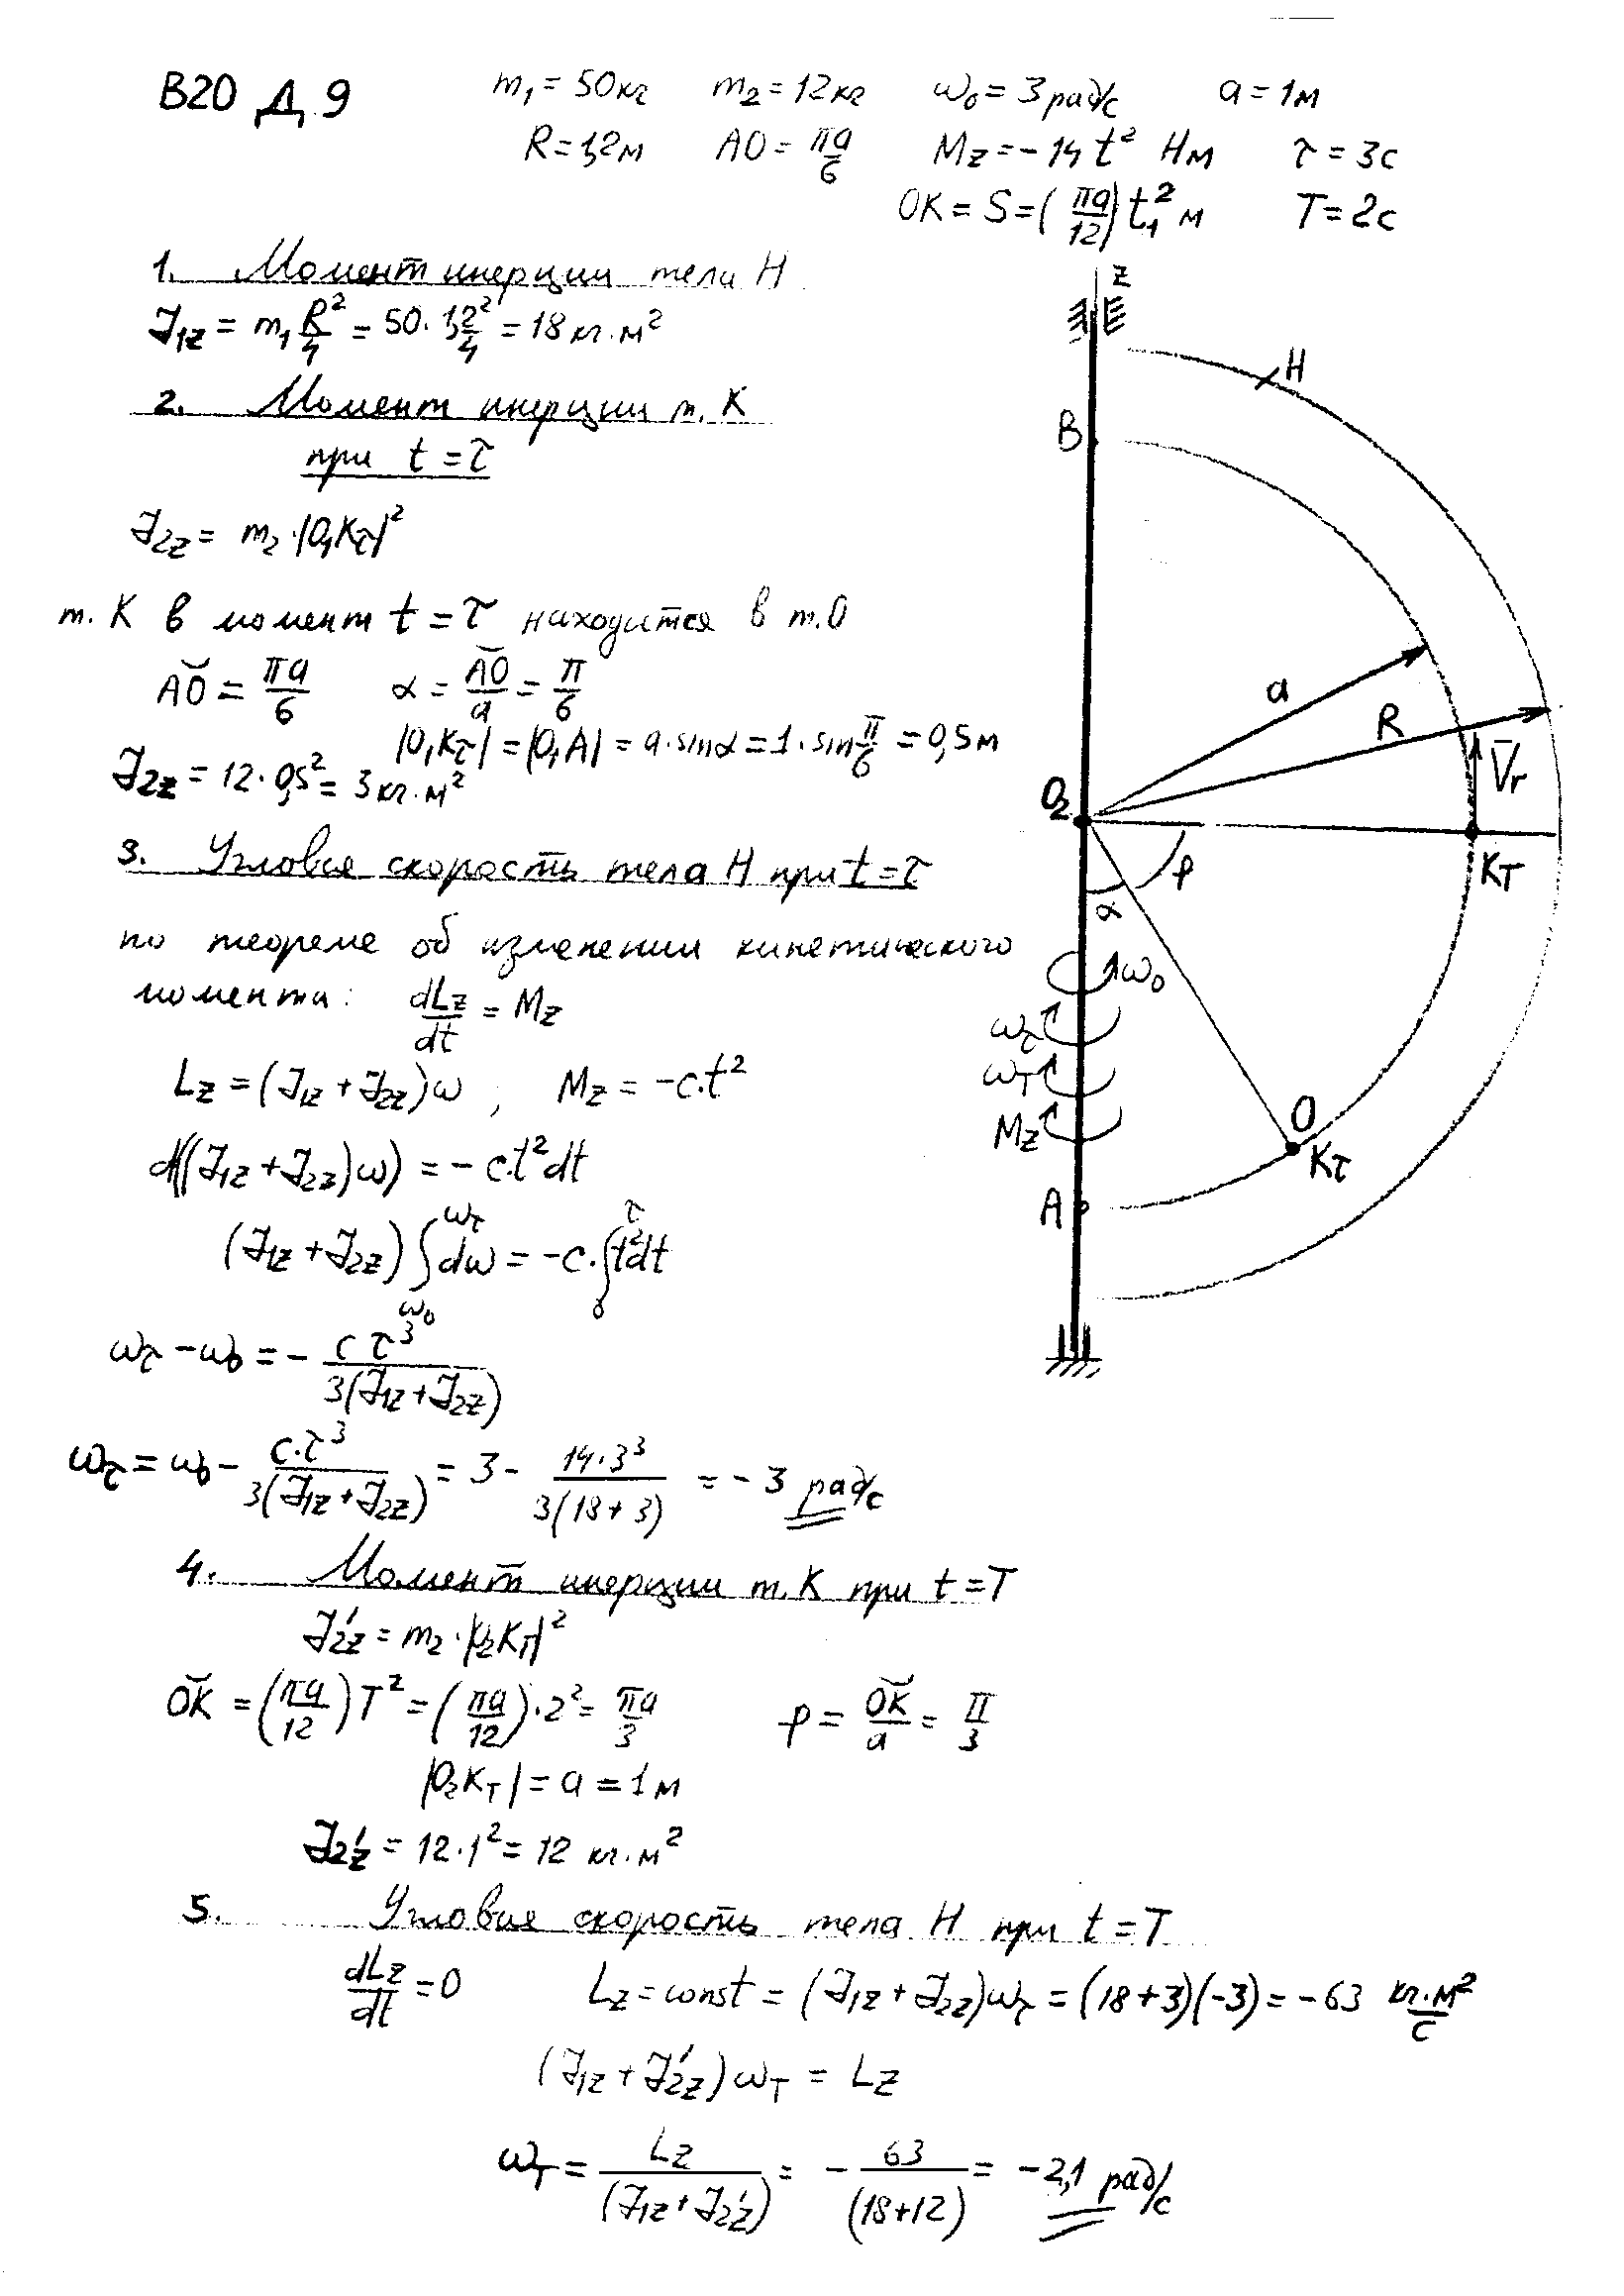 В20 Д 9   m₁ = 50кг   m₂ = 12кг   ω₀ = 3 рад/с   a = 1м
R = 1,2м   AO = πa/6   Mz = -14 t² Нм   τ = 3с
OK = S = (πa/12) t₁² м   T = 2с
1. Момент инерции тела H
J₁z = m₁ R²/4 = 50 · 1,2²/4 = 18 кг·м²
2. Момент инерции т. К
при t = τ
J₂z = m₂ · |O₁Kτ|²
т. К в момент t = τ находится в т. О
A͝O = πa/6   α = A͝O/a = π/6
|O₁Kτ| = |O₁A| = a · sinα = 1 · sin π/6 = 0,5м
J₂z = 12 · 0,5² = 3 кг·м²
3. Угловая скорость тела H при t = τ
по теореме об изменении кинетического
момента: dLz/dt = Mz
Lz = (J₁z + J₂z)ω ; Mz = -c·t²
d((J₁z + J₂z)ω) = -c·t²dt
(J₁z + J₂z) ∫ω₀^ωτ dω = -c · ∫₀^τ t²dt
ωτ - ω₀ = - c τ³/3(J₁z + J₂z)
ωτ = ω₀ - c·τ³/3(J₁z + J₂z) = 3 - 14·3³/3(18 + 3) = -3 рад/с
4. Момент инерции т. К при t = T
J₂'z = m₂ · |O₂KT|²
O͝K = (πa/12)T² = (πa/12)·2² = πa/3   φ = O͝K/a = π/3
|O₂KT| = a = 1м
J₂'z = 12·1² = 12 кг·м²
5. Угловая скорость тела H при t = T
dLz/dt = 0   Lz = const = (J₁z + J₂z)ωτ = (18 + 3)(-3) = -63 кг·м²/с
(J₁z + J₂'z)ωT = Lz
ωT = Lz/(J₁z + J₂'z) = - 63/(18+12) = -2,1 рад/с
z
H
B
a
R
V̄r
O₂
KT
φ
α
ω₀
ωτ
ωT
Mz
O
Kτ
A